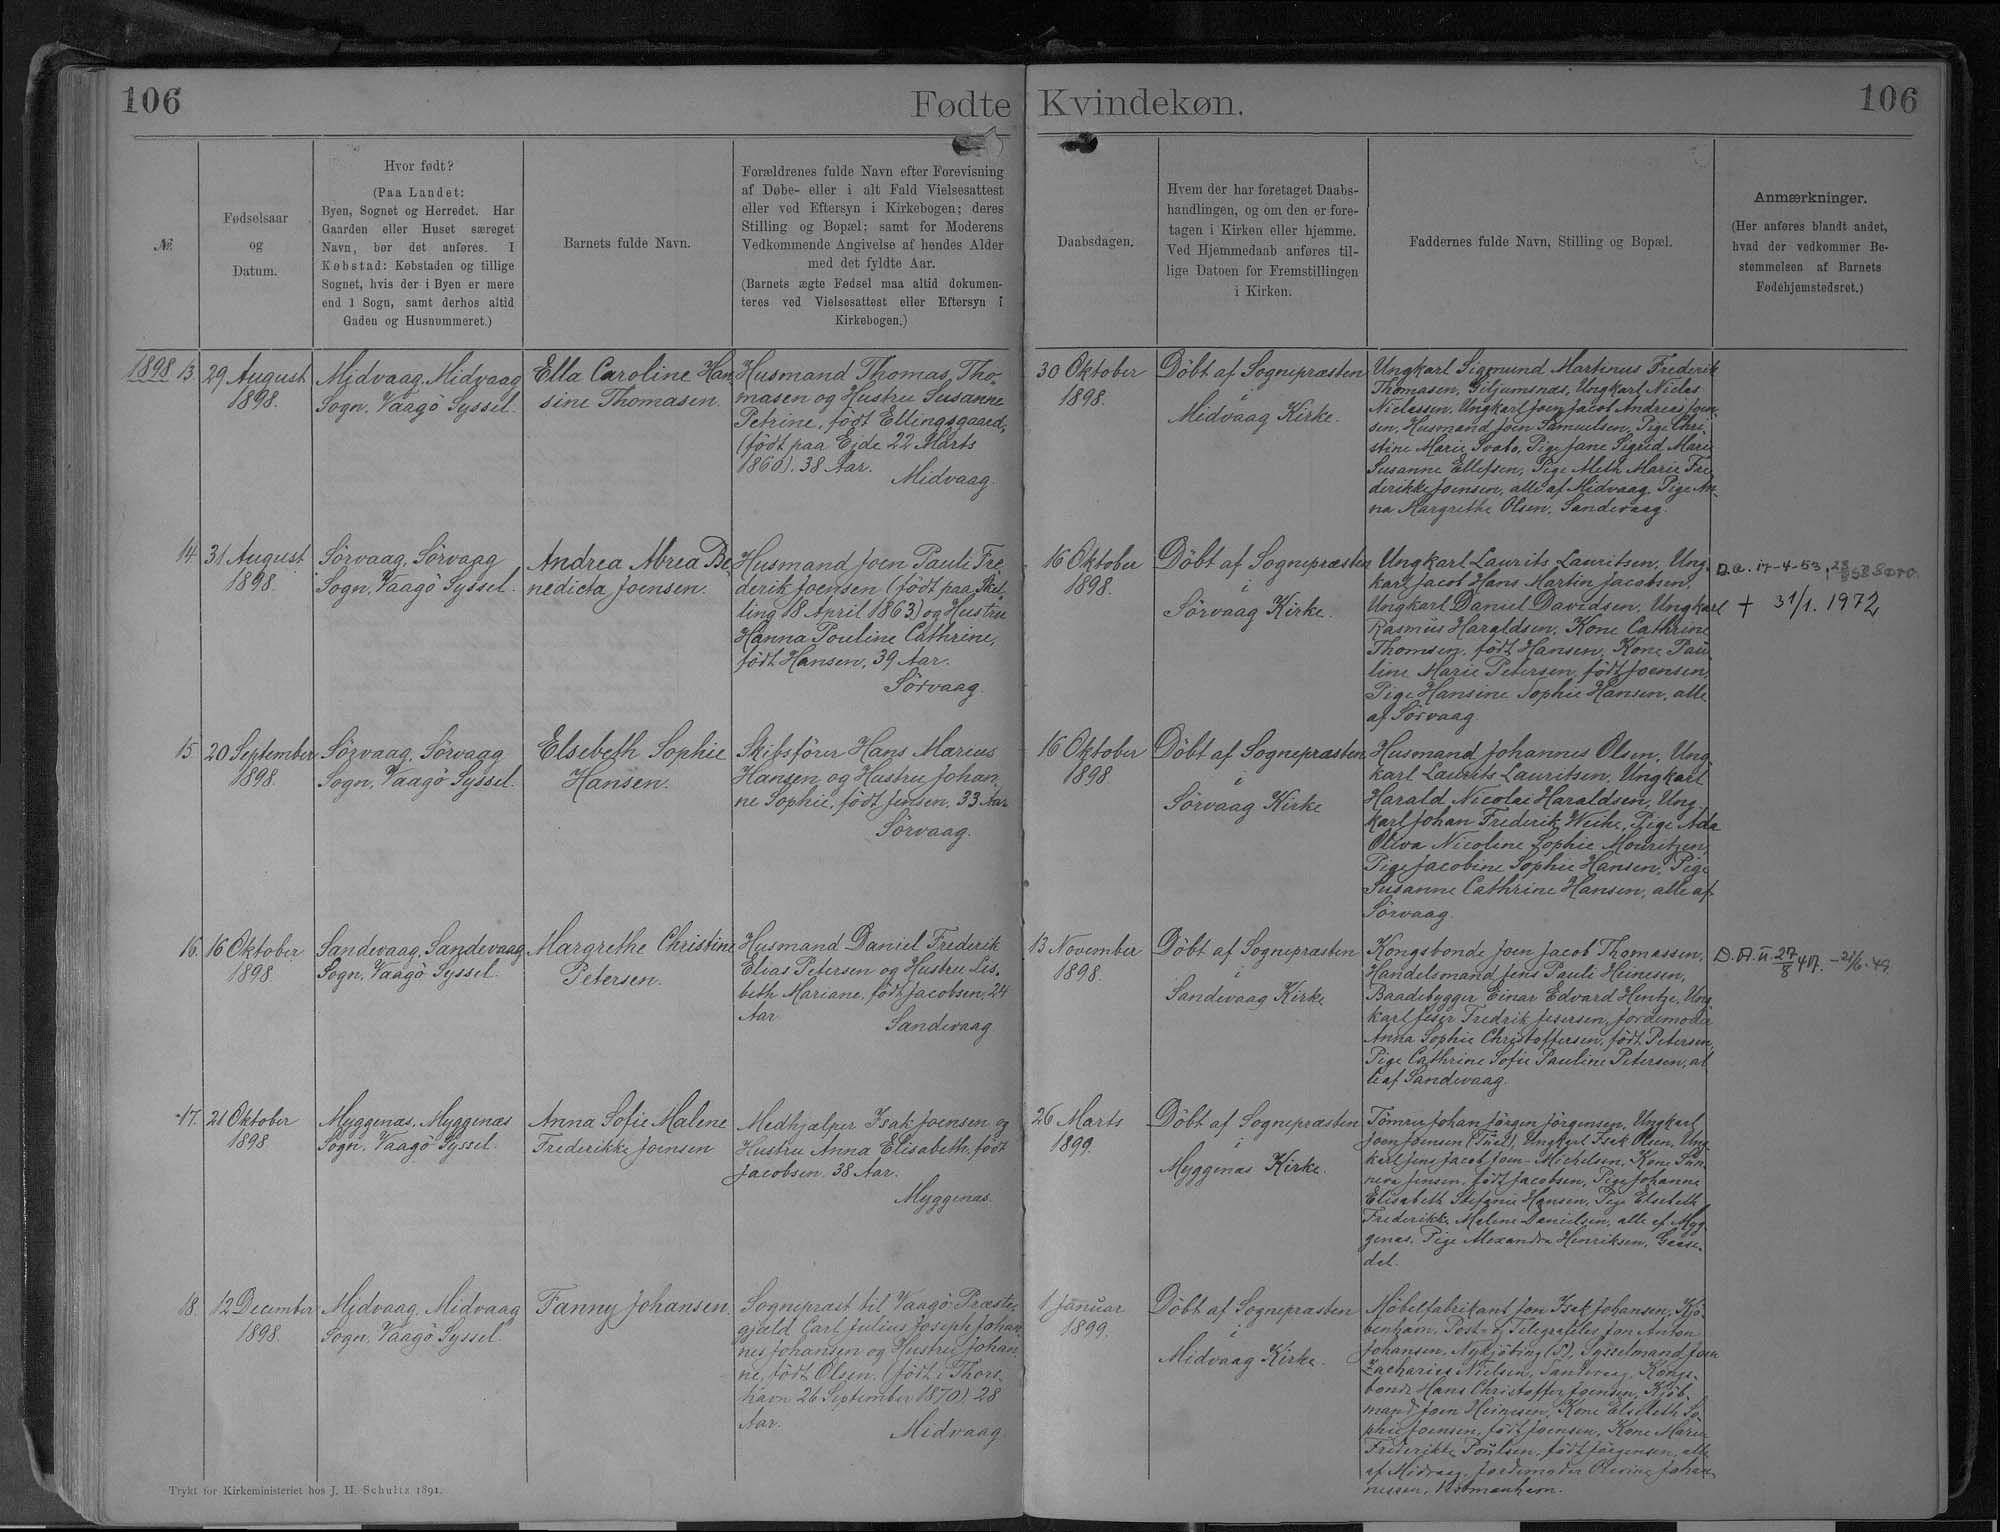 106
Fødte
Kvindekøn.
106
№
Fødselsaar
og
Datum.
Hvor født?
(Paa Landet:
Byen, Sognet og Herredet. Har
Gaarden eller Huset særeget
Navn, bør det anføres. I
Købstad: Købstaden og tillige
Sognet, hvis der i Byen er mere
end 1 Sogn, samt derhos altid
Gaden og Husnummeret.)
Barnets fulde Navn.
Forældrenes fulde Navn efter Forevisning
af Døbe- eller i alt Fald Vielsesattest
eller ved Eftersyn i Kirkebogen; deres
Stilling og Bopæl; samt for Moderens
Vedkommende Angivelse af hendes Alder
med det fyldte Aar.
(Barnets ægte Fødsel maa altid dokumen-
teres ved Vielsesattest eller Eftersyn i
Kirkebogen.)
Daabsdagen.
Hvem der har foretaget Daabs-
handlingen, og om den er fore-
tagen i Kirken eller hjemme.
Ved Hjemmedaab anføres til-
lige Datoen for Fremstillingen
i Kirken.
Faddernes fulde Navn, Stilling og Bopæl.
Anmærkninger.
(Her anføres blandt andet,
hvad der vedkommer Be-
stemmelsen af Barnets
Fødehjemstedsret.)
1898 13
29 August
1898.
Midvaag, Midvaag
Sogn, Vaagö Syssel.
Ella Caroline Han
sine Thomasen.
Husmand Thomas Tho-
masen og Hustru Susanne
Petrine, födt Ellingsgaard,
(födt paa Eide 22 Marts
1860). 38 Aar.
Midvaag.
30 Oktober
1898.
Döbt af Sognepræsten
i
Midvaag Kirke.
Ungkarl Sigmund Martinus Frederik
Thomasen, Giljumsnæs, Ungkarl Niclas
Niclassen, Ungkarl Joen Jacob Andreas Joen-
sen, Husmand Joen Samuelsen, Pige Chri-
stine Marie Svabo, Pige Jane Sigrid Marie
Susanne Ellefsen, Pige Meth Marie Fre-
derikke Joensen, alle af Midvaag, Pige An-
na Margrethe Olsen, Sandevaag.
14
31 August
1898.
Sörvaag, Sörvaag
Sogn, Vaagö Syssel.
Andrea Abrea Be-
nedicta Joensen.
Husmand Joen Pauli Fre-
derik Joensen (födt paa Skel-
ling 18 April 1863) og Hustru
Hanna Pouline Cathrine,
födt Hansen, 39 Aar.
Sörvaag.
16 Oktober
1898.
Döbt af Sognepræsten
i
Sörvaag Kirke.
Ungkarl Laurits Lauritsen, Ung-
karl Jacob Hans Martin Jacobsen,
Ungkarl Daniel Davidsen, Ungkarl
Rasmus Haraldsen, Kone Cathrine
Thomsen, födt Hansen, Kone Pau-
line Marie Petersen, födt Joensen,
Pige Hansine Sophie Hansen, alle
af Sörvaag.
D.a. 17-4-53,
+ 31/1. 1972
15
20 September
1898.
Sörvaag, Sörvaag
Sogn, Vaagö Syssel.
Elsebeth Sophie
Hansen.
Skibsförer Hans Marius
Hansen og Hustru Johan
ne Sophie, födt Jensen, 33 Aar
Sörvaag.
16 Oktober
1898
Döbt af Sognepræsten
i
Sörvaag Kirke
Husmand Johannes Olsen, Ung
karl Laurits Lauritsen, Ungkarl
Harald Nicolai Haraldsen, Ung-
karl Johan Frederik Weihe, Pige Ada
Oliva Nicoline Sophie Mouritzen,
Pige Jacobine Sophie Hansen, Pige
Susanne Cathrine Hansen, alle af
Sörvaag.
16.
16 Oktober
1898
Sandevaag, Sandevaag
Sogn, Vaagö Syssel.
Margrethe Christine
Petersen.
Husmand Daniel Frederik
Elias Petersen og Hustru Lis-
beth Mariane, födt Jacobsen, 24
Aar
Sandevaag
13 November
1898.
Döbt af Sognepræsten
i
Sandevaag Kirke
Kongsbonde Joen Jacob Thomassen,
Handelsmand Jens Pauli Heinesen,
Baadebygger Einar Edvard Hentze, Ung
karl Jesper Fredrik Jespersen, Jordemoder
Anna Sophie Christoffersen, födt Petersen,
Pige Cathrine Sofie Pauline Petersen, al
le af Sandevaag.
D.A. u. 27/8 47. - 21/6. 49
17.
21 Oktober
1898
Myggenæs, Myggenæs
Sogn, Vaagö Syssel.
Anna Sofie Malene
Frederikke Joensen
Medhjælper Isak Joensen og
Hustru Anna Elisabeth, födt
Jacobsen. 38 Aar.
Myggenæs.
26 Marts
1899.
Döbt af Sognepræsten
i
Myggenæs Kirke.
Tömrer Johan Jörgen Jörgensen, Ungkarl
Joen Joensen, Ungkarl Isak Olsen, Ung
karl Jens Jacob Joen-Michelsen, Kone Sun
neva Jensen, födt Jacobsen, Pige Johanne
Elisabeth Stefanie Hansen, Pige Elsebeth
Frederikke Malene Danielsen, alle af Myg-
genæs, Pige Alexandra Henriksen, Gaase-
dal.
18.
12 December
1898.
Midvaag, Midvaag
Sogn, Vaagö Syssel.
Fanny Johansen.
Sognepræst til Vaagö Præste-
gjæld Carl Julius Joseph Johan-
nes Johansen og Hustru Johan-
ne, födt Olsen. (födt i Thors-
havn 26 September 1870). 28
Aar.
Midvaag
1 Januar
1899.
Döbt af Sognepræsten
i
Midvaag Kirke.
Möbelfabrikant Jon Isak Johansen, Kjö-
benhavn, Post- og Telegrafeles Jon Anton
Johansen, Nykjöbing (S), Sysselmand Joen
Zacharias Nielsen, Sandevaag, Kongs-
bonde Hans Christoffer Joensen, Kjöb-
mand Joen Heinesen, Kone Elsebeth So-
phie Joensen, födt Joensen, Kone Marie
Frederikke Poulsen, födt Jörgensen, alle
af Midvaag, Jordemoder Olevine Johan-
nessen, Vestmanhavn.
Trykt for Kirkeministeriet hos J. H. Schultz 1891.